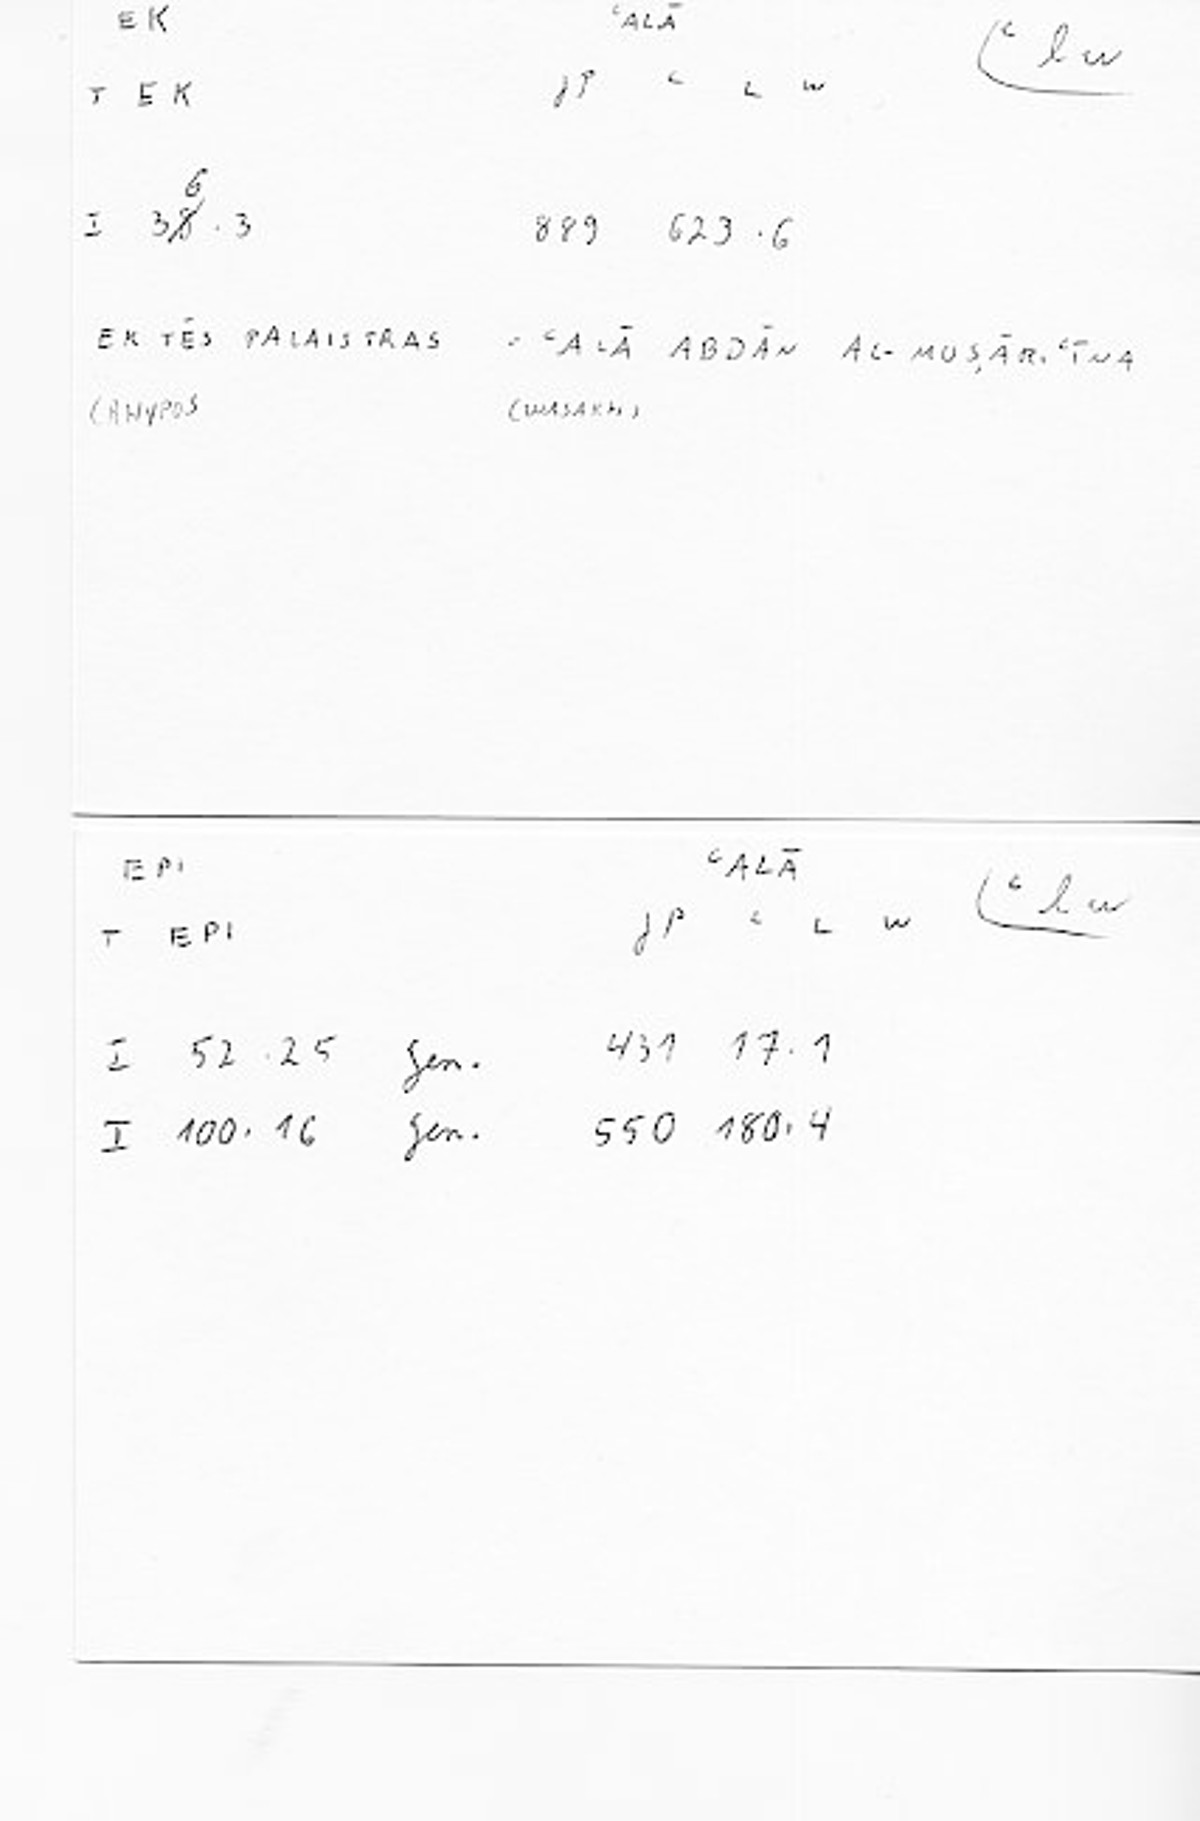 EK ʿALĀ (ʿlw
T EK JP ʿ L W
6
I 38.3 889 623.6
EK TĒS PALAISTRAS - ʿALĀ ABDĀN AL-MUṢĀRIʿĪNA
(RHYPOS (WASAKH)
EPI ʿALĀ (ʿlw
T EPI JP ʿ L W
I 52.25 gen. 431 17.1
I 100.16 gen. 550 180.4